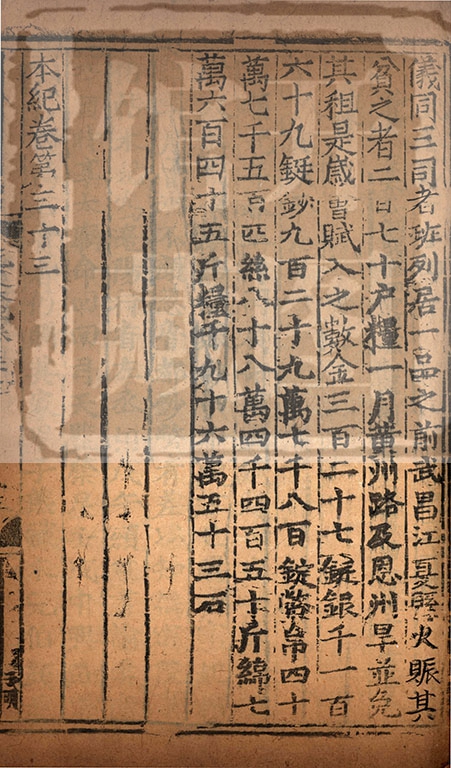 儀同三司者班列居一品之前武昌江夏縣火賑其
貧乏者二百七十户糧一月黄州路及恩州旱並免
其租是歲曽賦入之數金三百二十七錠銀千一百
六十九錠鈔九百二十九萬七千八百錠幣帛四十
萬七千五百匹絲八十八萬四千四百五十斤綿七
萬六百四十五斤糧千九十六萬五十三石
本紀卷第三十三